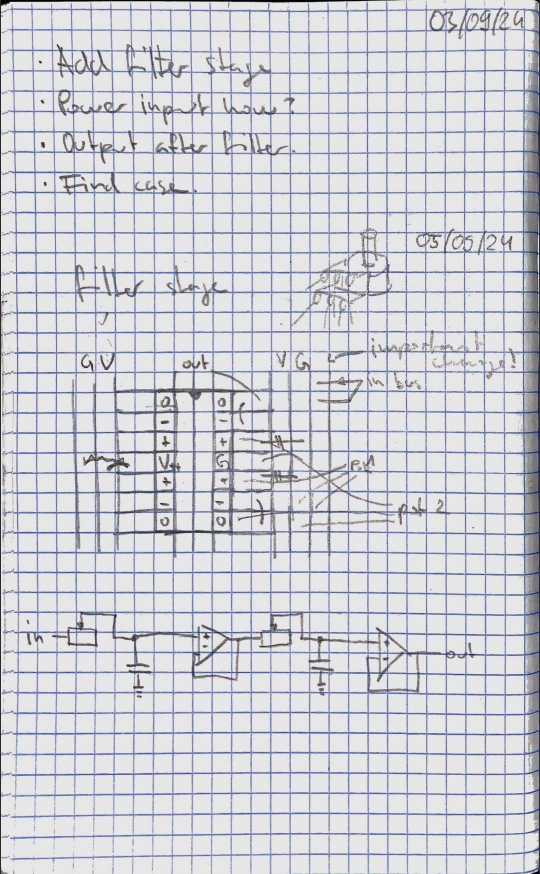 03/09/24
· Add filter stage
· Power input how?
· Output after filter.
· Find case.
05/09/24
filter stage
G V out V G ← important change!
in bus
O O
- -
+ +
V+ G
+ +
- -
O O
pot 1
pot 2
in + - + - out